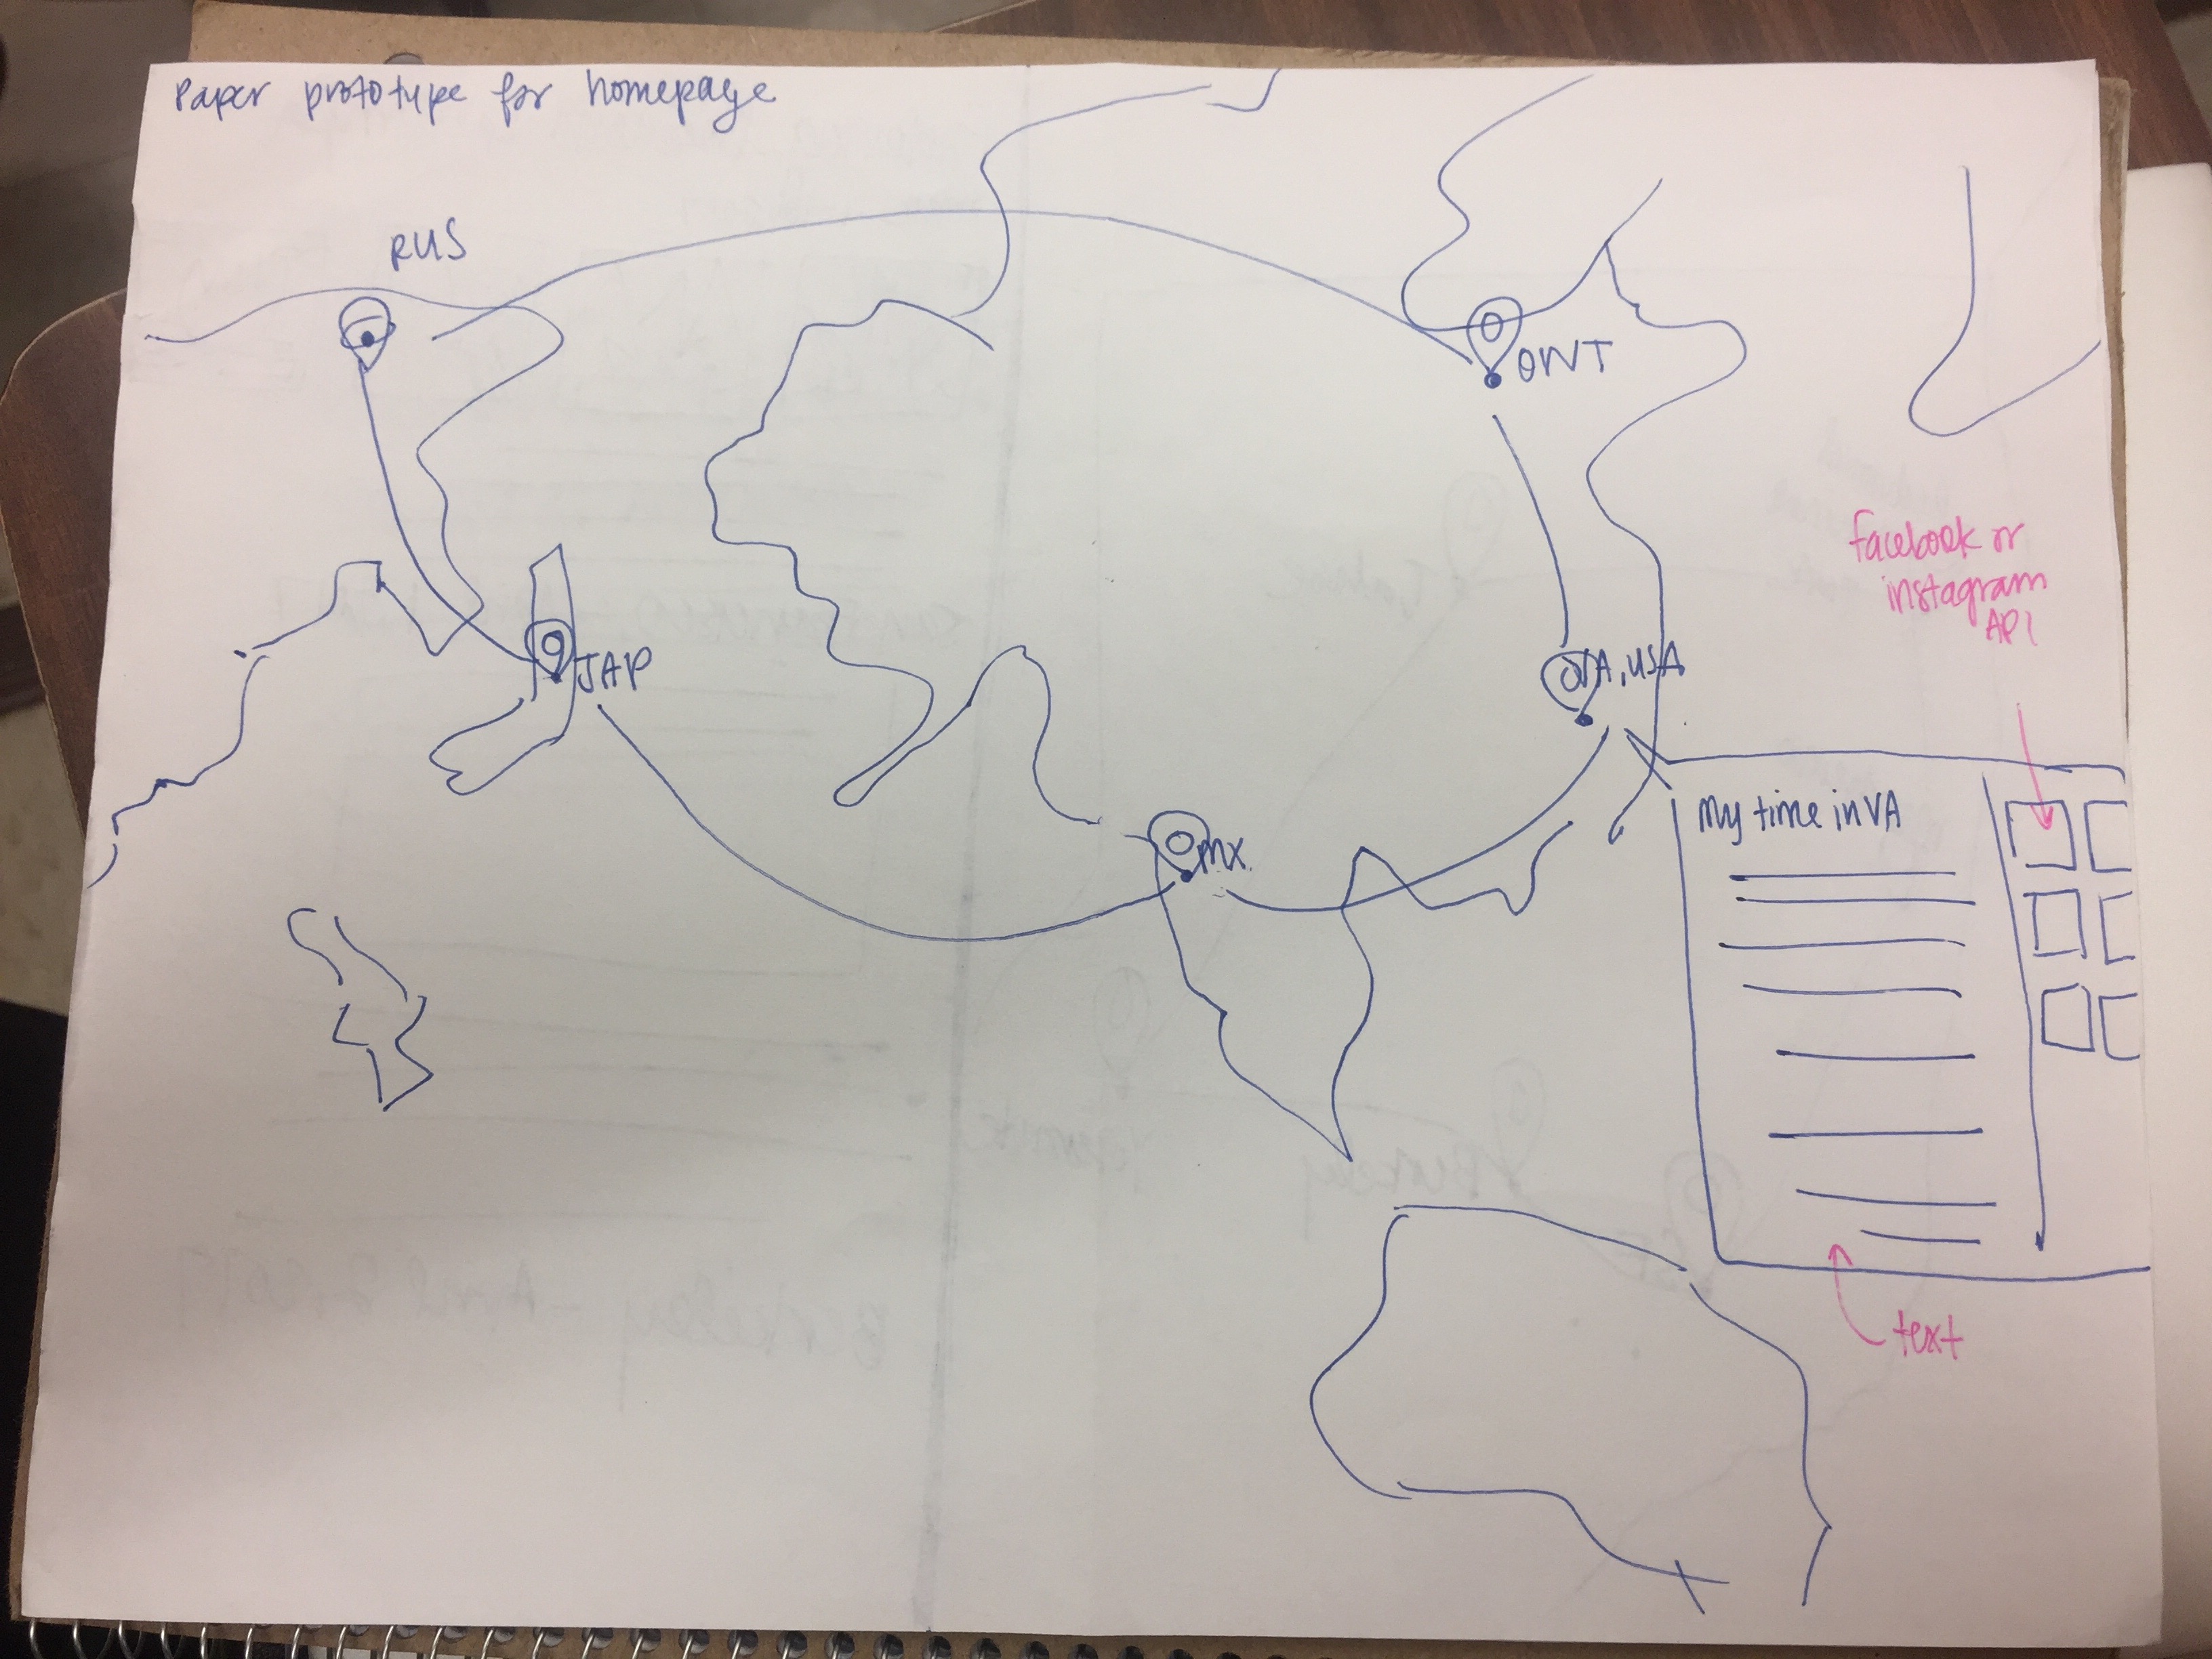 Paper prototype for homepage
RUS
ONT
JAP
VA, USA
MX
facebook or
instagram
API
My time in VA
text